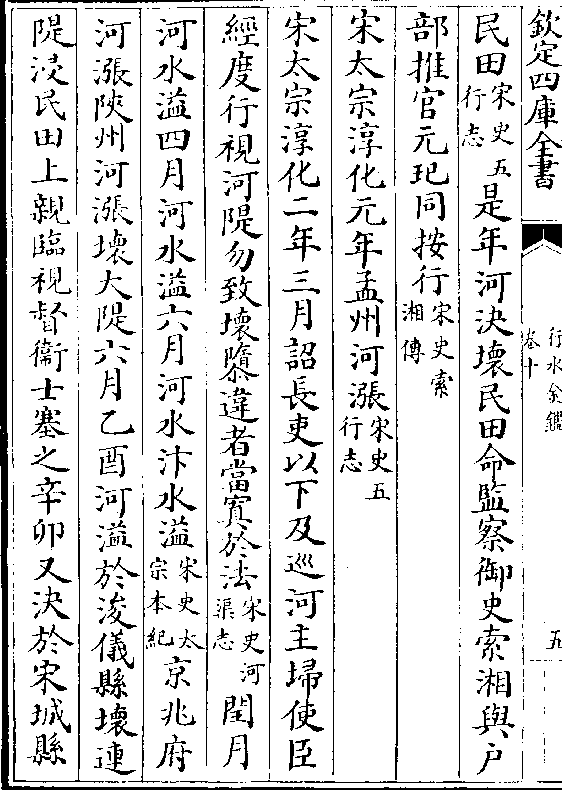 欽定四庫全書
行水金鑑
卷十
五
民田宋史五行志是年河決壞民田命監察御史索湘與户
部推官元玘同按行宋史索湘傳
宋太宗淳化元年孟州河漲宋史五行志
宋太宗淳化二年三月詔長吏以下及巡河主埽使臣
經度行視河隄勿致壞隳違者當寘於法宋史河渠志閏月
河水溢四月河水溢六月河水汴水溢宋史太宗本紀京兆府
河漲陜州河漲壞大隄六月乙酉河溢於浚儀縣壞連
隄浸民田上親臨視督衞士塞之辛卯又決於宋城縣